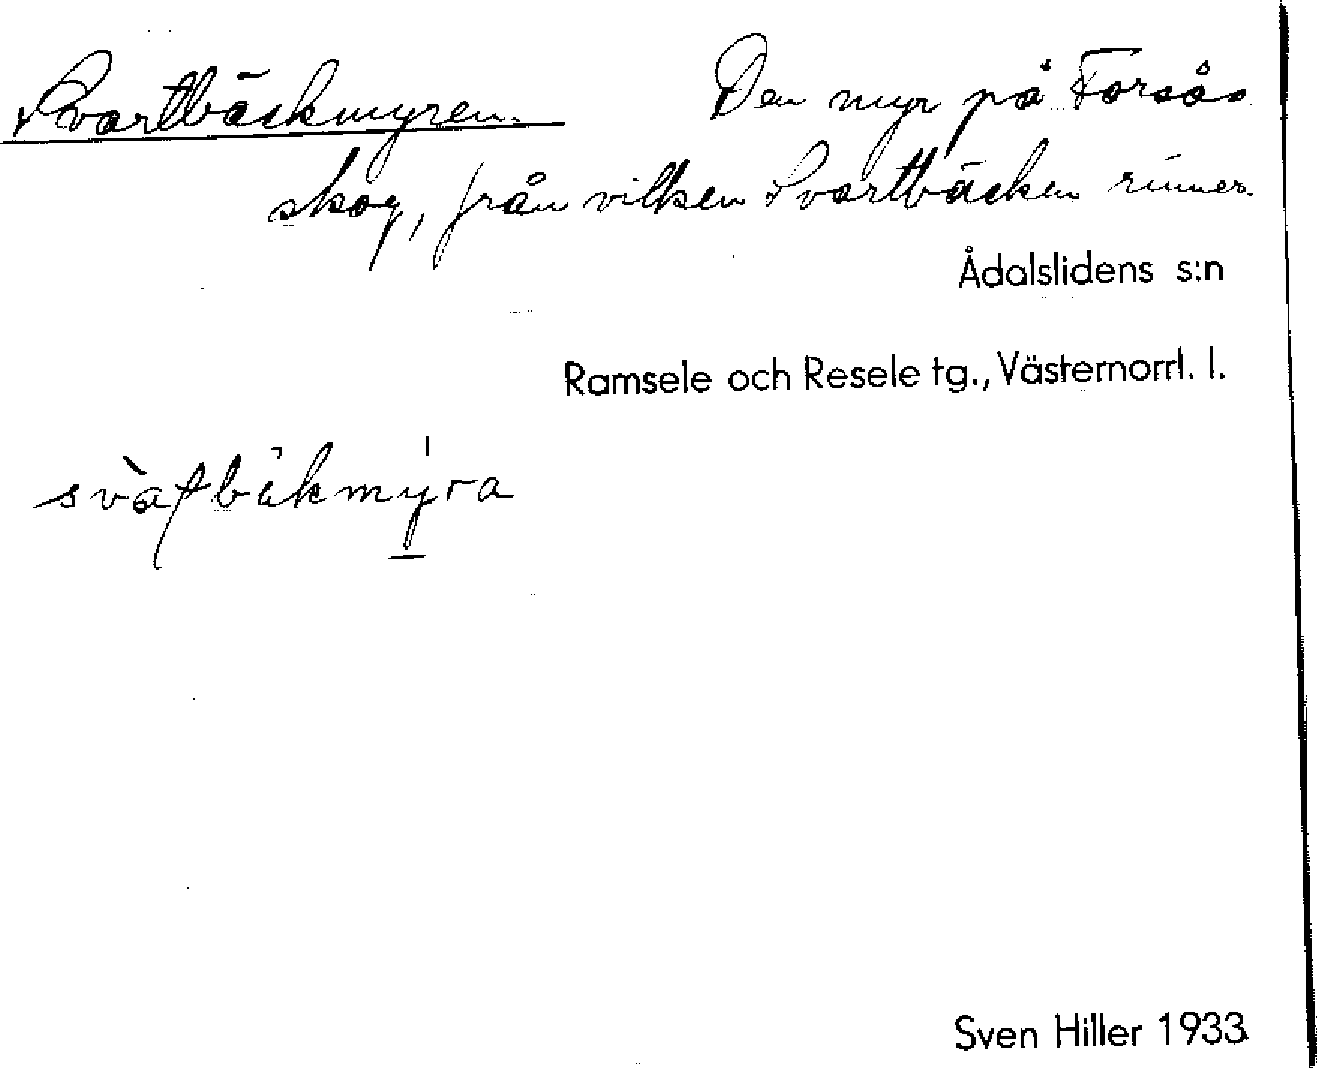 Svartbäckmyren. Den myr på Forsås
skog, från vilken Svartbäcken rinner.
Ådalslidens s:n
Ramsele och Resele tg., Västernorrl. l.
Sven Hiller 1933